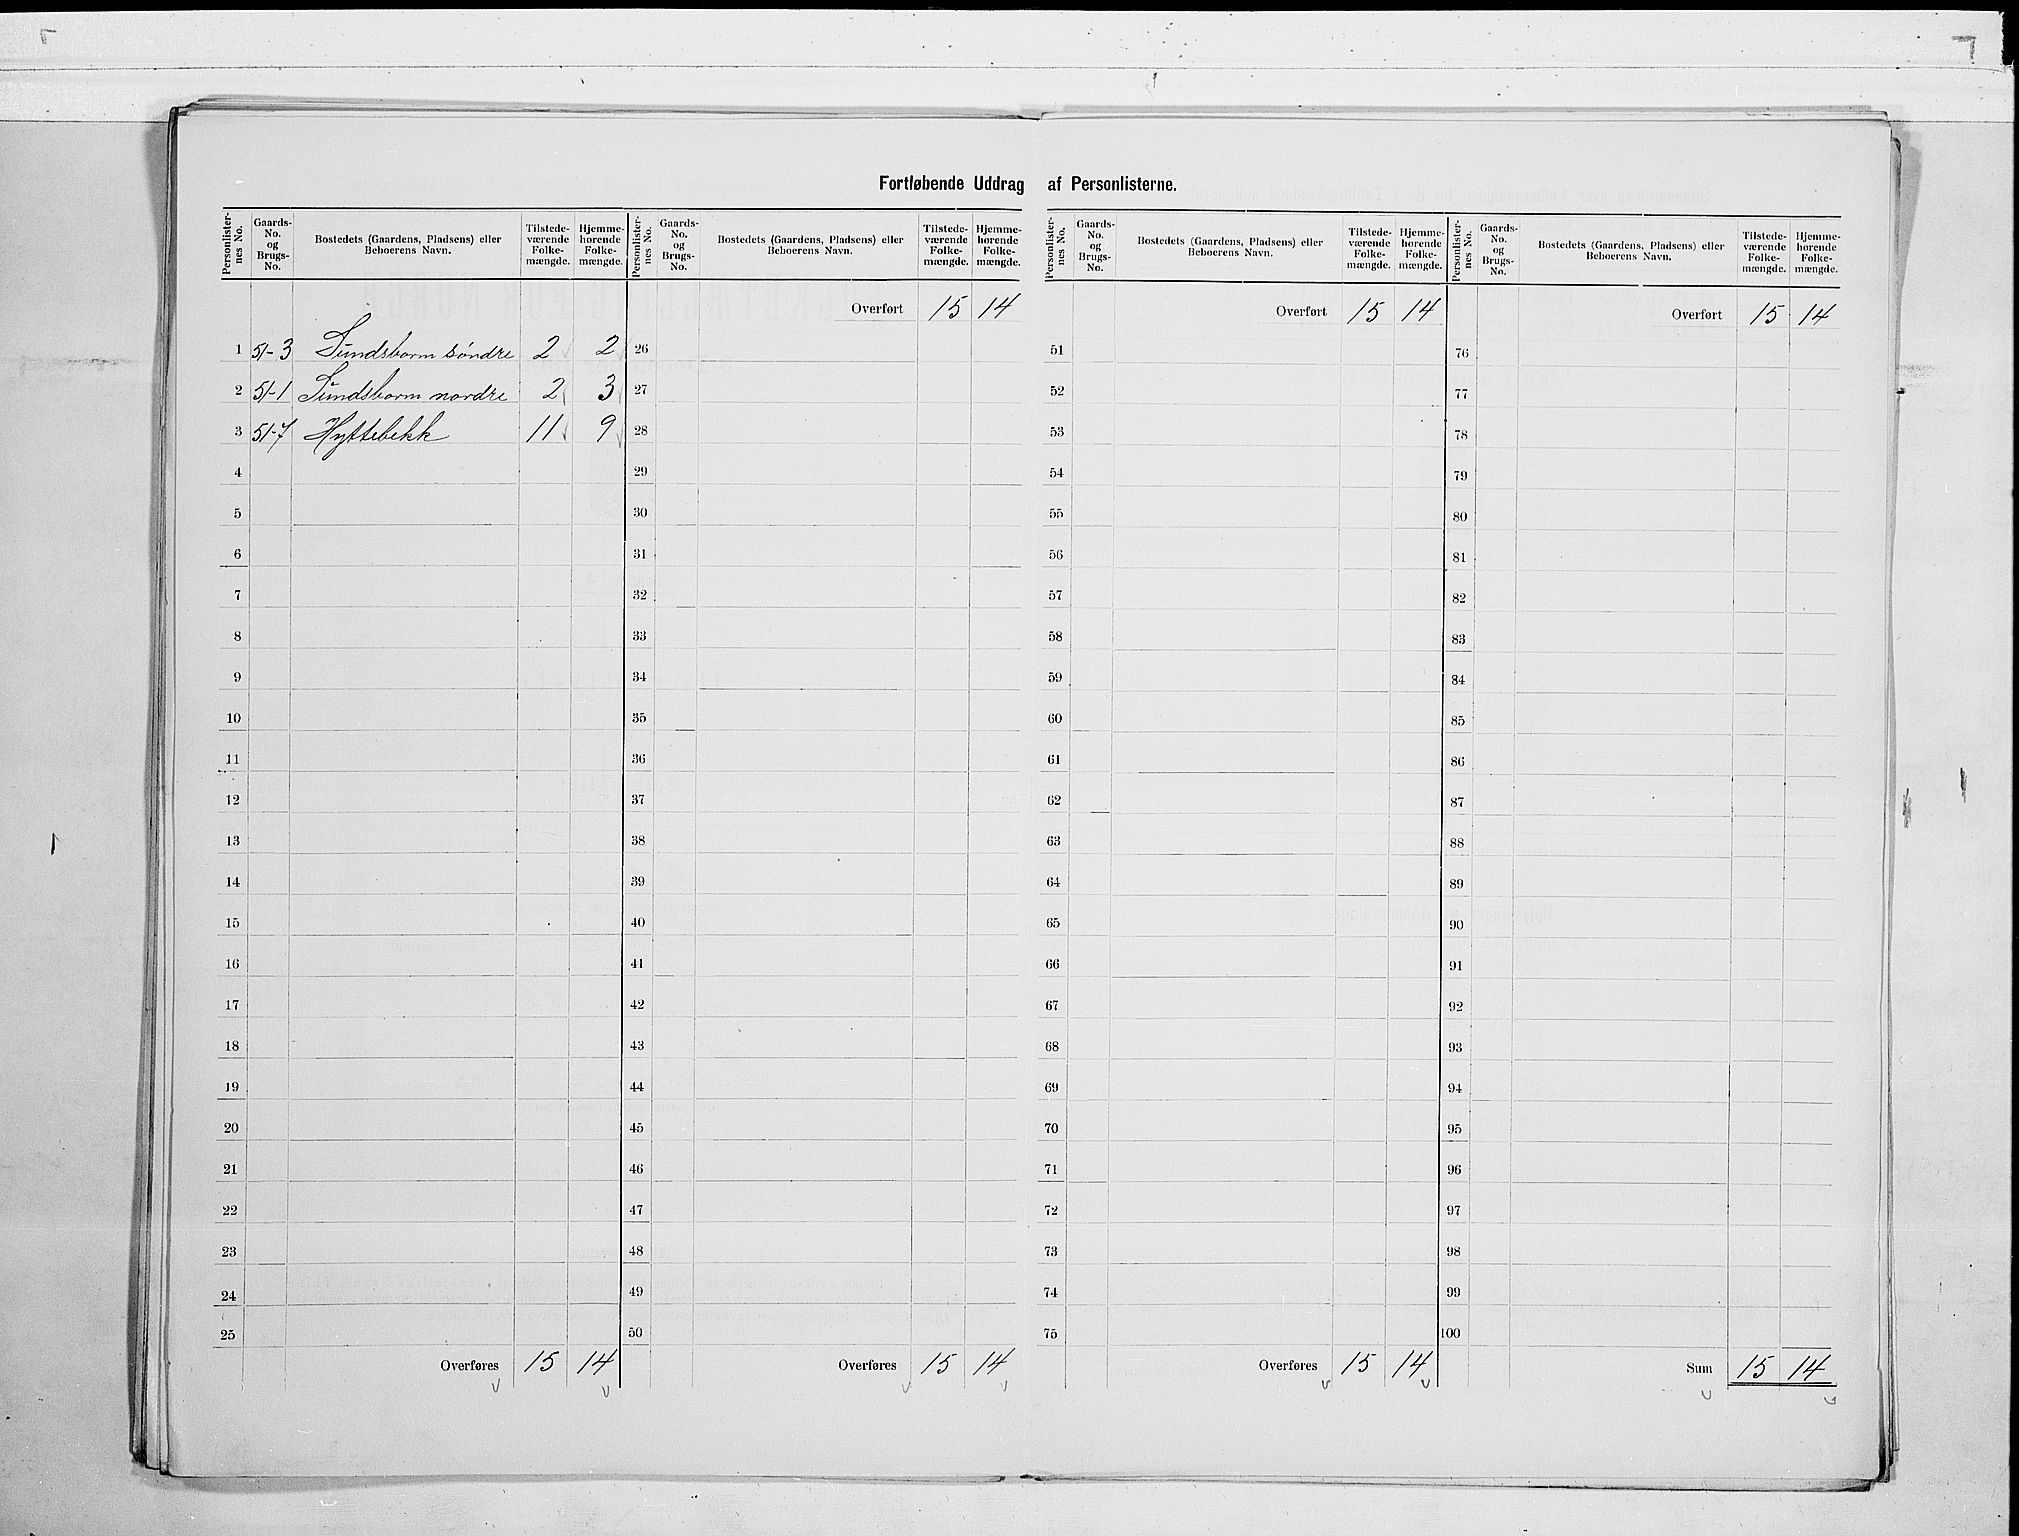 Fortløbende Uddrag af Personlisterne.
Personlister-nes No. | Gaards-No. og Brugs-No. | Bostedets (Gaardens, Pladsens) eller Beboerens Navn. | Tilstede-værende Folke-mængde. | Hjemme-hørende Folke-mængde.
1 51-3 Sundsbarm söndre 2 2
2 51-1 Sundsbarm nordre 2 3
3 51-7 Hyttebekk 11 9
4
5
6
7
8
9
10
11
12
13
14
15
16
17
18
19
20
21
22
23
24
25
Overføres 15 14
Personlister-nes No. | Gaards-No. og Brugs-No. | Bostedets (Gaardens, Pladsens) eller Beboerens Navn. | Tilstede-værende Folke-mængde. | Hjemme-hørende Folke-mængde.
Overført 15 14
26
27
28
29
30
31
32
33
34
35
36
37
38
39
40
41
42
43
44
45
46
47
48
49
50
Overføres 15 14
Personlister-nes No. | Gaards-No. og Brugs-No. | Bostedets (Gaardens, Pladsens) eller Beboerens Navn. | Tilstede-værende Folke-mængde. | Hjemme-hørende Folke-mængde.
Overført 15 14
51
52
53
54
55
56
57
58
59
60
61
62
63
64
65
66
67
68
69
70
71
72
73
74
75
Overføres 15 14
Personlister-nes No. | Gaards-No. og Brugs-No. | Bostedets (Gaardens, Pladsens) eller Beboerens Navn. | Tilstede-værende Folke-mængde. | Hjemme-hørende Folke-mængde.
Overført 15 14
76
77
78
79
80
81
82
83
84
85
86
87
88
89
90
91
92
93
94
95
96
97
98
99
100
Sum 15 14